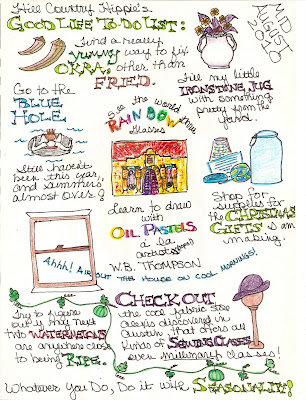 Hill Country Hippie's
GOOD LIFE TO-DO LIST:
MID
AUGUST
Find a really
yummy way to fix
OKRA, other than
FRIED.
Fill my little
IRONSTONE JUG
with something
pretty from the
yard.
Go to the
BLUE
HOLE.
Still haven't
been this year,
and summer's
almost over!
See the world thru
RAINBOW
Glasses
Shop for
supplies for
the CHRISTMAS
GIFTS I am
making.
Learn to draw
with
OIL PASTELS
a la
artist
W.B. THOMPSON
Ahhh! AIR OUT THE HOUSE ON COOL MORNINGS!
Try to figure
out if my next
two WATERMELONS
are anywhere close
to being RIPE.
CHECK OUT
the cool fabric store
Alexis discovered in
Austin that offers all
kinds of SEWING CLASSES
even millinary classes!
Whatever You Do, Do it with SEASONALITY!